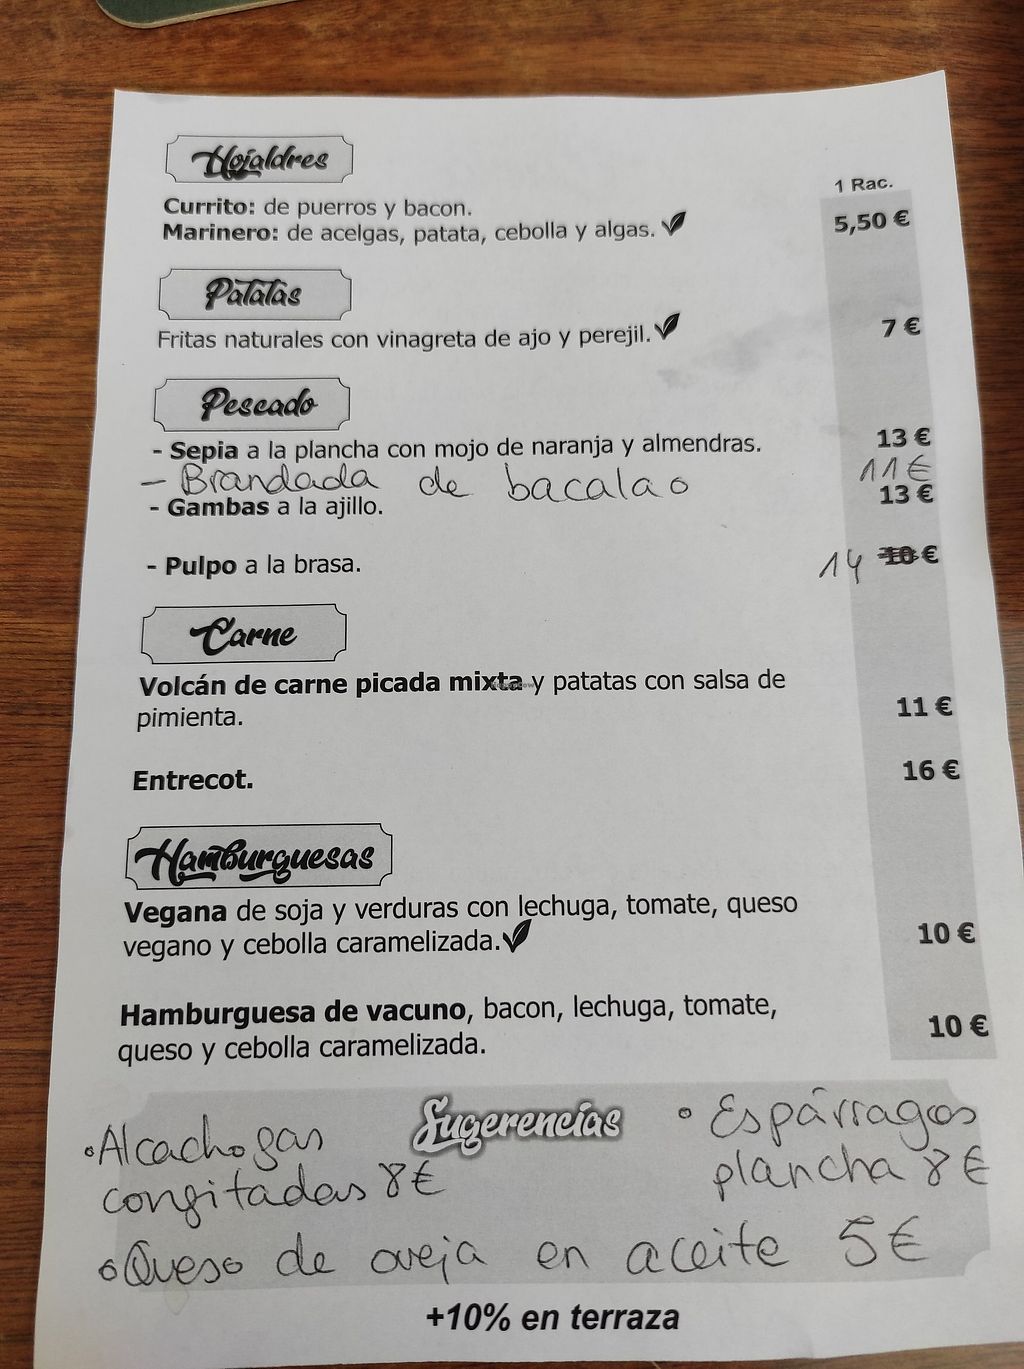 Hojaldres
1 Rac.
Currito: de puerros y bacon.
Marinero: de acelgas, patata, cebolla y algas. 5,50 €
Patatas
Fritas naturales con vinagreta de ajo y perejil. 7 €
Pescado
- Sepia a la plancha con mojo de naranja y almendras. 13 €
- Brandada de bacalao 11€
- Gambas a la ajillo. 13 €
- Pulpo a la brasa. 14 10 €
Carne
Volcán de carne picada mixta y patatas con salsa de
pimienta. 11 €
Entrecot. 16 €
Hamburguesas
Vegana de soja y verduras con lechuga, tomate, queso
vegano y cebolla caramelizada. 10 €
Hamburguesa de vacuno, bacon, lechuga, tomate,
queso y cebolla caramelizada. 10 €
Sugerencias
• Alcachofas
confitadas 8€
• Espárragos
plancha 8€
• Queso de oveja en aceite 5€
+10% en terraza